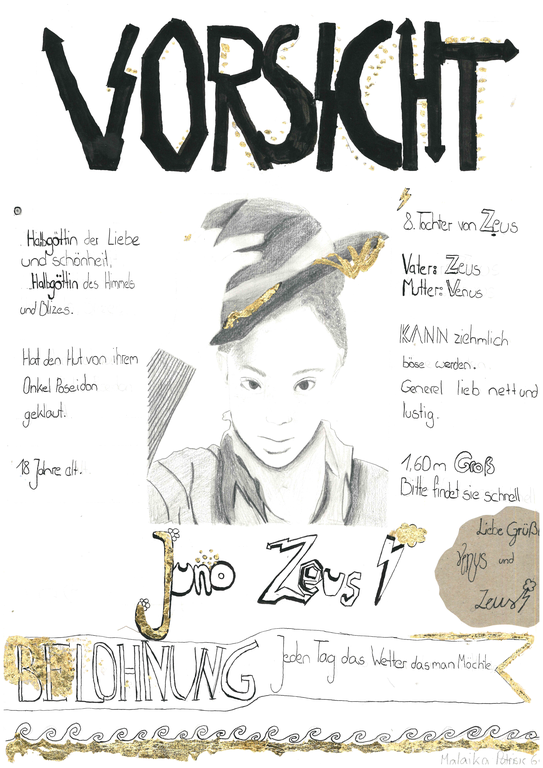 VORSICHT
Halbgöttin der Liebe
und schönheit.
Halbgöttin des Himmels
und Blizes.
Hat den Hut von ihrem
Onkel Poseidon
geklaut.
18 Jahre alt.
8. Tochter von Zeus
Vater: Zeus
Mutter: Venus
KANN ziehmlich
böse werden.
Generel lieb nett und
lustig.
1,60m Groß
Bitte findet sie schnell
Liebe Grüße
Venus und
Zeus
Juno Zeus
BELOHNUNG Jeden Tag das Wetter das man Möchte
Malaika